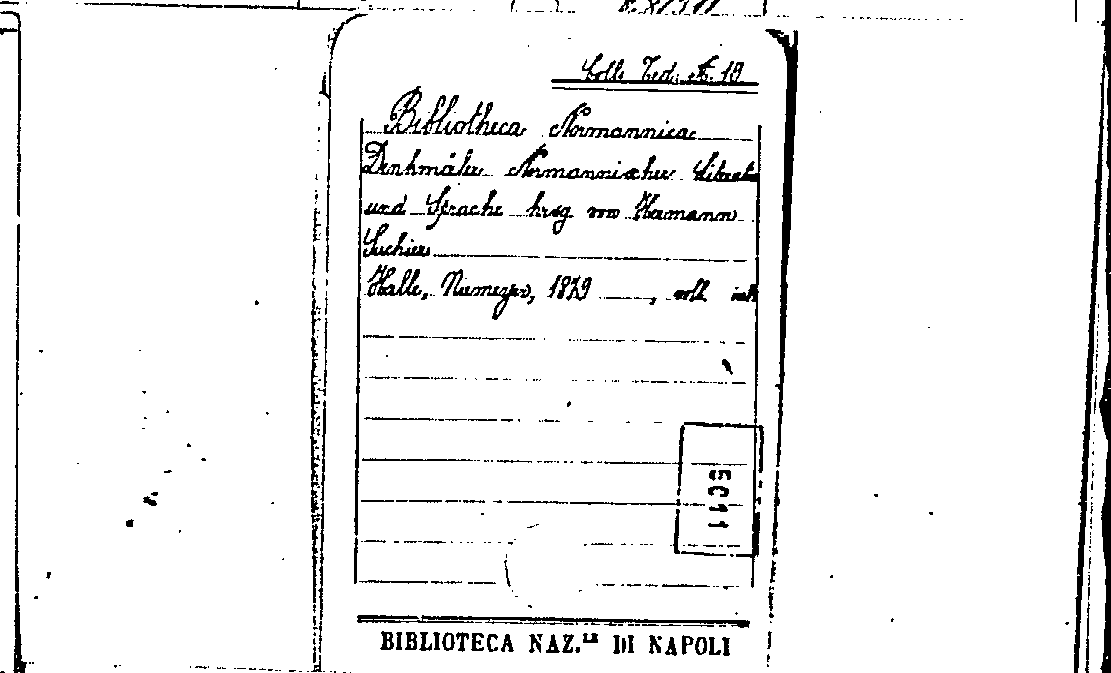 Coll. Ted. A. 19
Bibliotheca Normannica
Denkmäler Normannischer Literatur
und Sprache hrsg von Hermann
Suchier
Halle, Niemeyer, 1879 ___, voll in8
5011
BIBLIOTECA NAZ.LE DI NAPOLI